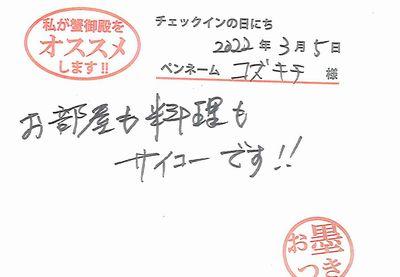 私が蟹御殿を
オススメ
します!!
チェックインの日にち
2022年3月5日
ペンネーム コズキチ 様
お部屋も料理も
サイコーです!!
お墨
つき